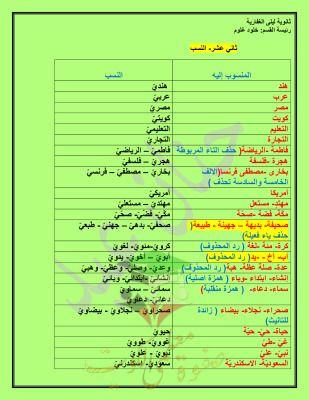 ثانوية ليلى الغفارية
رئيسة القسم: خلود علوم
ثاني عشر- النسب
المنسوب إليه النسب
هند هنديّ
عرب عربيّ
مصر مصريّ
كويت كويتيّ
التعليم التعليميّ
التجارة التجاريّ
فاطمة -الرياضة( حذف التاء المربوطة فاطميّ – الرياضيّ
هجرة -فلسفة هجريّ – فلسفيّ
بخارى -مصطفى فرنسا(الألف بخاريّ – مصطفيّ – فرنسيّ
الخامسة والسادسة تحذف )
أمريكا أمريكيّ
مهتدٍ- مستعل مهتديّ – مستعليّ
مكة- فضة -صحّة مكيّ- فضّيّ- صحّيّ
صحيفة- بديهة – جهينة - طبيعة( صحفيّ- بدهيّ – جهنيّ - طبعيّ
حذف ياء فعيلة)
كرة- مئة -لغة ( رد المحذوف) كرويّ-مئويّ- لغويّ
أب- أخ - يد( رد المحذوف) أبويّ – أخويّ- يدويّ
عدة- صلة عظة- هبة( رد المحذوف) وعديّ- وصليّ- وعظيّ- وهبيّ
إنشاء- ابتداء -وباء ( همزة أصلية) إنشائيّ- ابتدائيّ- وبائيّ
سماء- دعاء- ( همزة منقلبة) سمائيّ – سماويّ
دعائيّ- دعاويّ
صحراء- نجلاء- بيضاء ( زائدة صحراويّ – نجلاويّ - بيضاويّ
للتأنيث)
حياة- حيّ- حيّة حيويّ
غيّ -طيّ غوويّ- طوويّ
نبيّ- عليّ نبويّ - علويّ
السعوديّة- الاسكندريّة سعوديّ- اسكندريّ